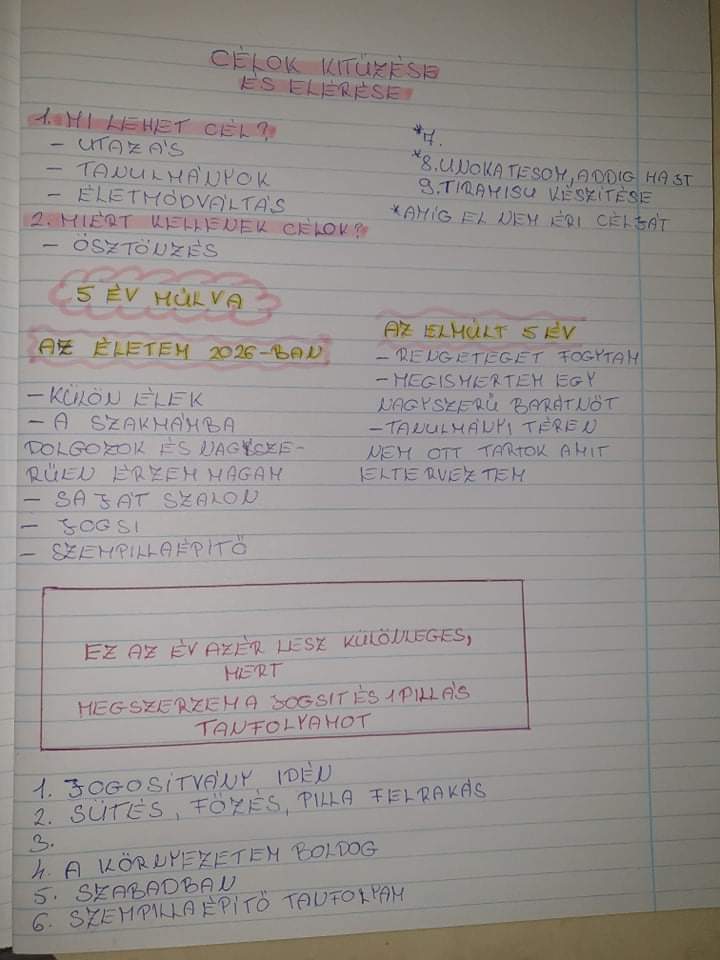 CÉLOK KITŰZÉSE
ÉS ELÉRÉSE
1. MI LEHET CÉL?
- UTAZÁS
- TANULMÁNYOK
- ÉLETMÓDVÁLTÁS
2. MIÉRT KELLENEK CÉLOK?
- ÖSZTÖNZÉS
*7.
*8. UNOKATESOM, ADDIG HAST
9. TIRAMISU KÉSZÍTÉSE
*AMÍG EL NEM ÉRI CÉLJÁT
5 ÉV MÚLVA
AZ ÉLETEM 2026-BAN
- KÜLÖN ÉLEK
- A SZAKMÁMBA
DOLGOZOK ÉS NAGYSZE-
RŰEN ÉRZEM MAGAM
- SAJÁT SZALON
- JOGSI
- SZEMPILLAÉPÍTŐ
AZ ELMÚLT 5 ÉV
- RENGETEGET FOGYTAM
- MEGISMERTEM EGY
NAGYSZERŰ BARÁTNŐT
- TANULMÁNYI TÉREN
NEM OTT TARTOK AMIT
ELTERVEZTEM
EZ AZ ÉV AZÉR LESZ KÜLÖNLEGES,
MERT
MEGSZERZEM A JOGSIT ÉS 1 PILLÁS
TANFOLYAMOT
1. JOGOSÍTVÁNY IDÉN
2. SÜTÉS, FŐZÉS, PILLA FELRAKÁS
3.
4. A KÖRNYEZETEM BOLDOG
5. SZABADBAN
6. SZEMPILLAÉPÍTŐ TANFOLYAM